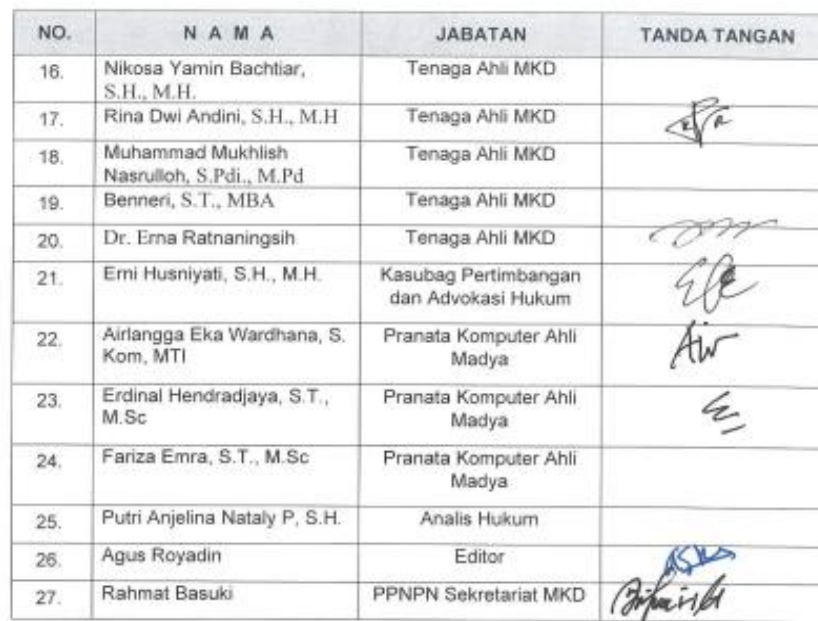 NO. N A M A JABATAN TANDA TANGAN
16. Nikosa Yamin Bachtiar, Tenaga Ahli MKD
S.H., M.H.
17. Rina Dwi Andini, S.H., M.H Tenaga Ahli MKD
18. Muhammad Mukhlish Tenaga Ahli MKD
Nasrulloh, S.Pdi., M.Pd
19. Benneri, S.T., MBA Tenaga Ahli MKD
20. Dr. Erna Ratnaningsih Tenaga Ahli MKD
21. Erni Husniyati, S.H., M.H. Kasubag Pertimbangan
dan Advokasi Hukum
22. Airlangga Eka Wardhana, S. Pranata Komputer Ahli
Kom, MTI Madya
23. Erdinal Hendradjaya, S.T., Pranata Komputer Ahli
M.Sc Madya
24. Fariza Emra, S.T., M.Sc Pranata Komputer Ahli
Madya
25. Putri Anjelina Nataly P, S.H. Analis Hukum
26. Agus Royadin Editor
27. Rahmat Basuki PPNPN Sekretariat MKD